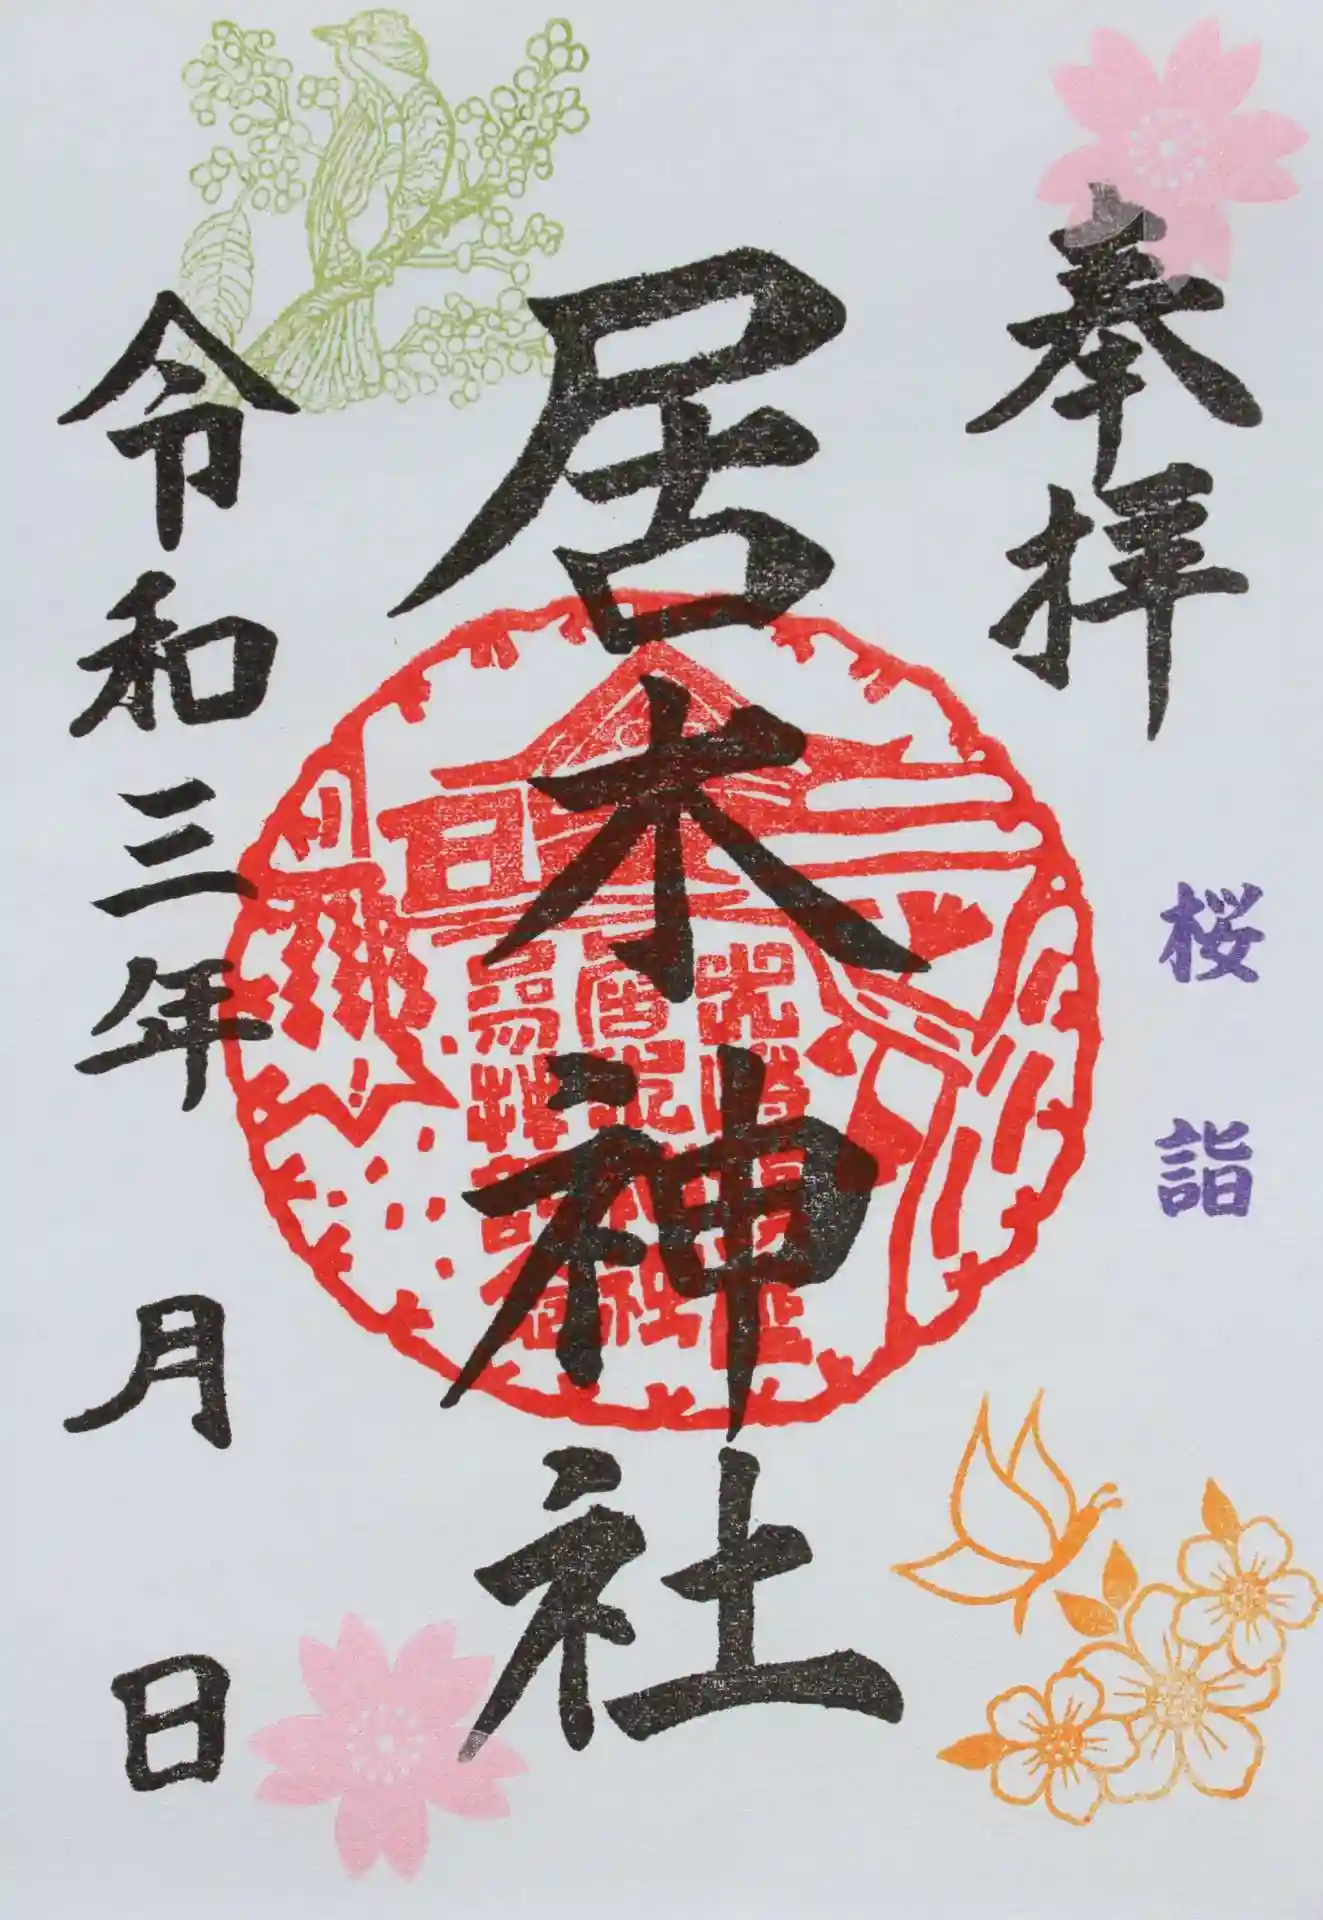 奉拝
桜詣
居木神社
令和三年 月 日